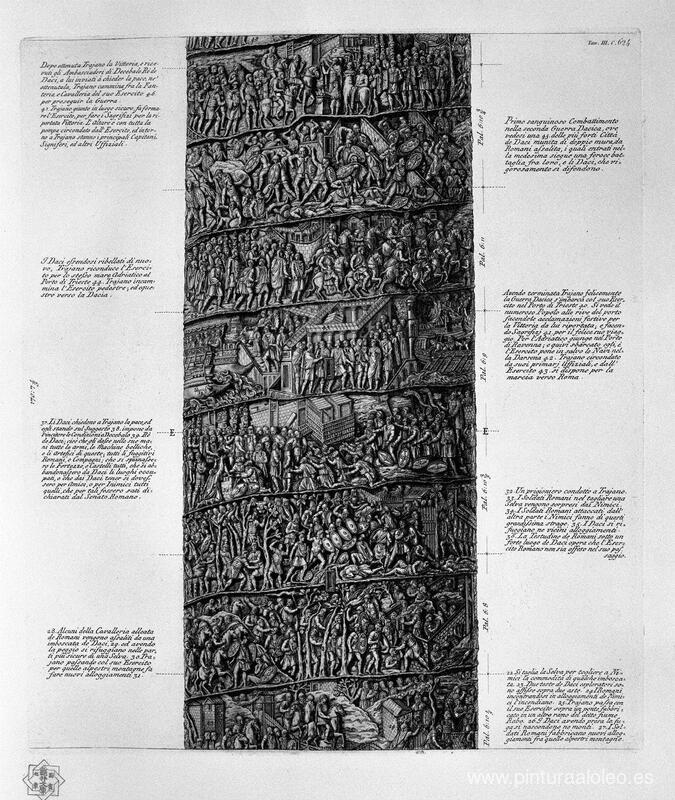 Tom. III. C. 624
Dopo ottenuta Trajano la Vittoria, e rice-
vuti gli Ambasciadori di Decebalo Rè de
Daci, a lui inviati à chieder la pace, nè
ottenutala, Trajano cammina fra la Fan-
teria e Cavalleria del suo Esercito 46.
per proseguir la Guerra.
47. Trajano giunto in luogo sicuro, fà forma-
re l'Esercito, per fare i Sagrifizi per la ri-
portata Vittoria. L'Altore è con tutta la
pompa circondato dall'Esercito, ed inter-
no a Trajano stanno i principali Capitani,
Signiferi, ed altri Uffiziali.
Primo sanguinoso Combattimento
nella seconda Guerra Dacica, ove
vedesi una 45. delle più forti Città
de Daci munita di doppie mura, da
Romani assalita, i quali entrati nel-
la medesima siegue una feroce bat-
taglia fra loro, e li Daci, che vi-
gorosamente si difendono.
I Daci essendosi ribellati di nuo-
vo, Trajano riconduce l'Eserci-
to per lo stesso mare Adriatico al
Porto di Trieste 44. Trajano incam-
mina l'Esercito pedestre, ed eque-
stre verso la Dacia.
Avendo terminata Trajano felicemente
la Guerra Dacica s'imbarca col suo Eser-
cito nel Porto di Trieste 40. Si vede il
numeroso Popolo alle rive del porto
facendole acclamazioni festive per
la Vittoria da lui riportata; e facen-
do Sagrifizj 41. per il felice suo viag-
gio. Per l'Adriatico giunge nel Porto
di Ravenna; e quivi sbarcato egli, e
l'Esercito pone in salvo le Navi nel-
la Darsena 42. Trajano circondato
da suoi primarj Uffiziali, e dall'
Esercito 43. si dispone per la
marcia verso Roma.
37. Li Daci chiedono a Trajano la pace, ed
egli stando sul Suggesto 38. impone da
Vincitore le Condizioni a Decebalo 39. Rè
de Daci; cioè che gli dasse nelle sue ma-
ni tutte le armi, le Machine belliche,
e li Artefici di queste; tutti li fuggitivi
Romani, e Compagni; che si spianasse-
ro le Fortezze, e Castelli tutti, che si ab-
bandonassero da Daci li luoghi occu-
pati, e che dai Daci tener si doves-
sero per Amici, o per Inimici tutti
quelli, che per tali fossero stati di-
chiarati dal Senato Romano.
E
E
32. Un prigioniero condotto a Trajano.
33. I Soldati Romani nel tagliare una
Selva vengono sorpresi dai Nimici.
34. I Soldati Romani attaccati dall'
altra parte i Nimici fanno di questi
grandissima strage. 35. I Daci si ri-
fuggiano ne vicini alloggiamenti.
36. La Testudine de Romani sotto un
forte luogo de Daci opera che l'Eser-
cito Romano non sia offeso nel suo pas-
saggio.
28. Alcuni della Cavalleria alleata
de Romani vengono assaliti da una
imboscata de Daci, 29. ed avendo
la peggio si rifuggiano nelle par-
ti più sicure di una Selva. 30. Tra-
jano passando col suo Esercito
per quelle alpestri montagne, fà
fare nuovi alloggiamenti 31.
22. Si taglia la Selva per togliere a Ni-
mici la commodità di qualche imbosca-
ta. 23. Due teste de Daci esploratori so-
no affisse sopra due aste. 24. I Romani
incontrandosi in alloggiamenti de Nimi-
ci l'incendiano. 25. Trajano passa con
il suo Esercito sopra un ponte fabbri-
cato in un altro ramo del ditto fiume
Rabo. 26. I Daci avendo presa la fu-
ga si nascondono ne monti. 27. I Sol-
dati Romani fabbricano nuovi allog-
giamenti fra quelle alpestri montagne.
Pal. 6:11
Pal. 6:9
Pal. 6:8
www.pinturaaloleo.es